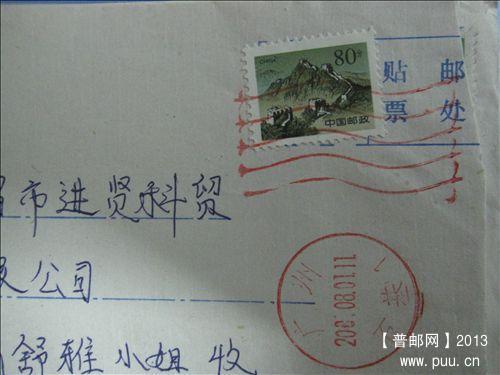 CHINA
80分
中国邮政
贴 邮
票 处
市进贤科贸
公司
舒雅小姐 收
广州
08.01.11
【普邮网】2013
www.puu.cn